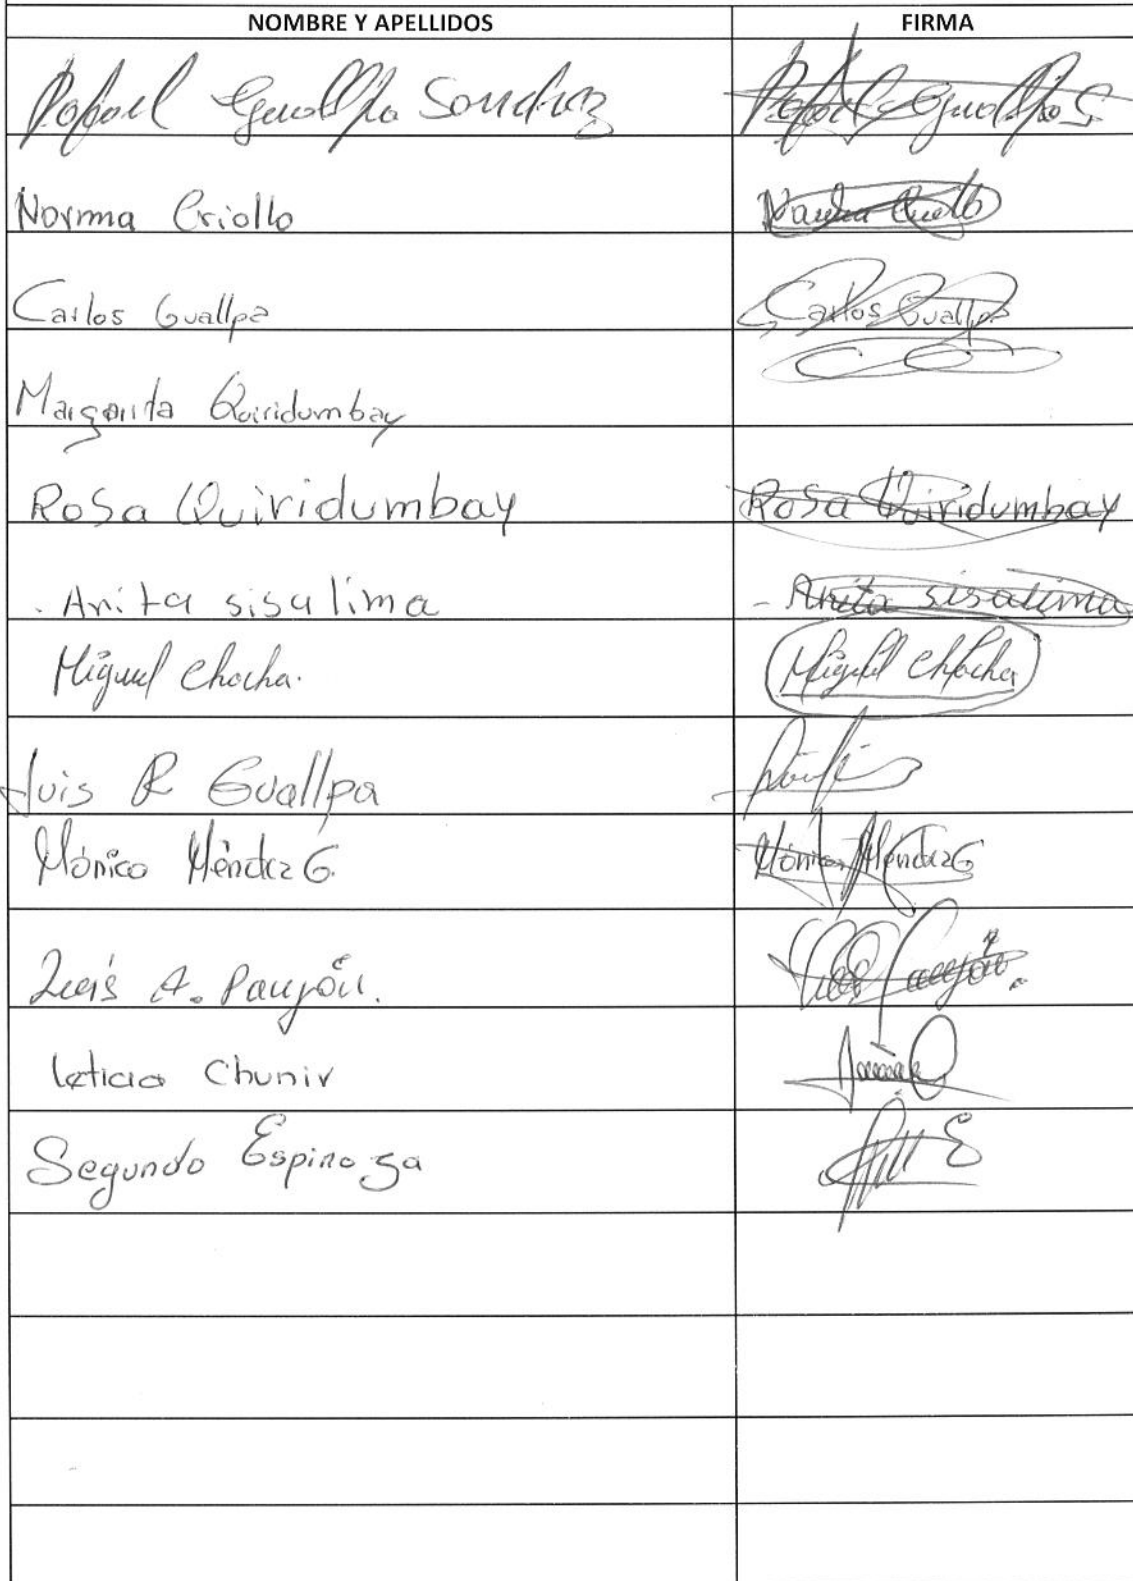 NOMBRE Y APELLIDOS FIRMA
Rafael Guallpa Sanchez Rafael Guallpa S
Norma Criollo Norma Criollo
Carlos Guallpa Carlos Guallpa
Margarita Quiridumbay
Rosa Quiridumbay Rosa Quiridumbay
. Anita sisalima - Anita sisalima
Miguel Chocha. Miguel Chocha
Luis R Guallpa
Mónica Méndez G. Mónica Méndez G
Luis A. Paujón.
Leticia Chunir
Segundo Espinoza